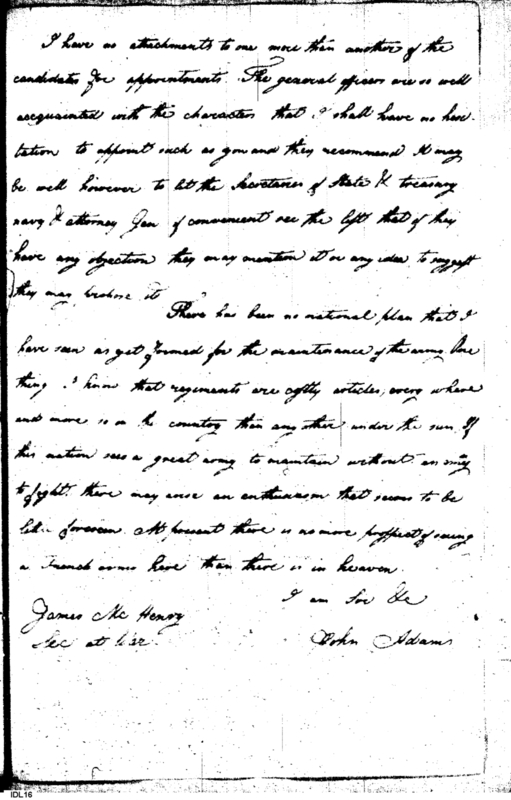 I have no attachments to one more than another of the
candidates for appointments. The general officers are so well
acquainted with the characters that I shall have no hesi-
tation to appoint such as you and they recommend It may
be well however to let the Secretaries of State & treasury
navy & attorney Gen if convenient see the list that if they
have any objection they may mention it or any idea to suggest
they may propose it
There has been no national plan that I
have seen as yet formed for the maintenance of the army. One
thing I know that regiments are costly articles, every where
and more so in the country than any other under the sun. If
this nation sees a great army to maintain without an enemy
to fight there may arise an enthusiasm that seems to be
little foreseen. At present there is no more prospect of seeing
a French army here than there is in heaven.
I am Sir &c
James McHenry
Sec at War
John Adams
IDL16